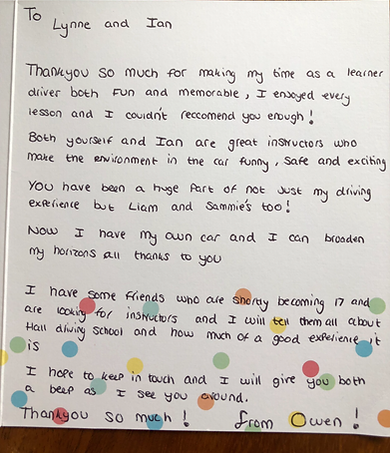 To Lynne and Ian
Thankyou so much for making my time as a learner
driver both fun and memorable, I enjoyed every
lesson and I couldn't reccomend you enough!
Both yourself and Ian are great instructors who
make the environment in the car funny, safe and exciting
You have been a huge part of not just my driving
experience but Liam and Sammie's too!
Now I have my own car and I can broaden
my horizons all thanks to you
I have some friends who are shortly becoming 17 and
are looking for instructors and I will tell them all about
Hall driving school and how much of a good experience it
is
I hope to keep in touch and I will give you both
a beep as I see you around.
Thankyou so much! from Owen!